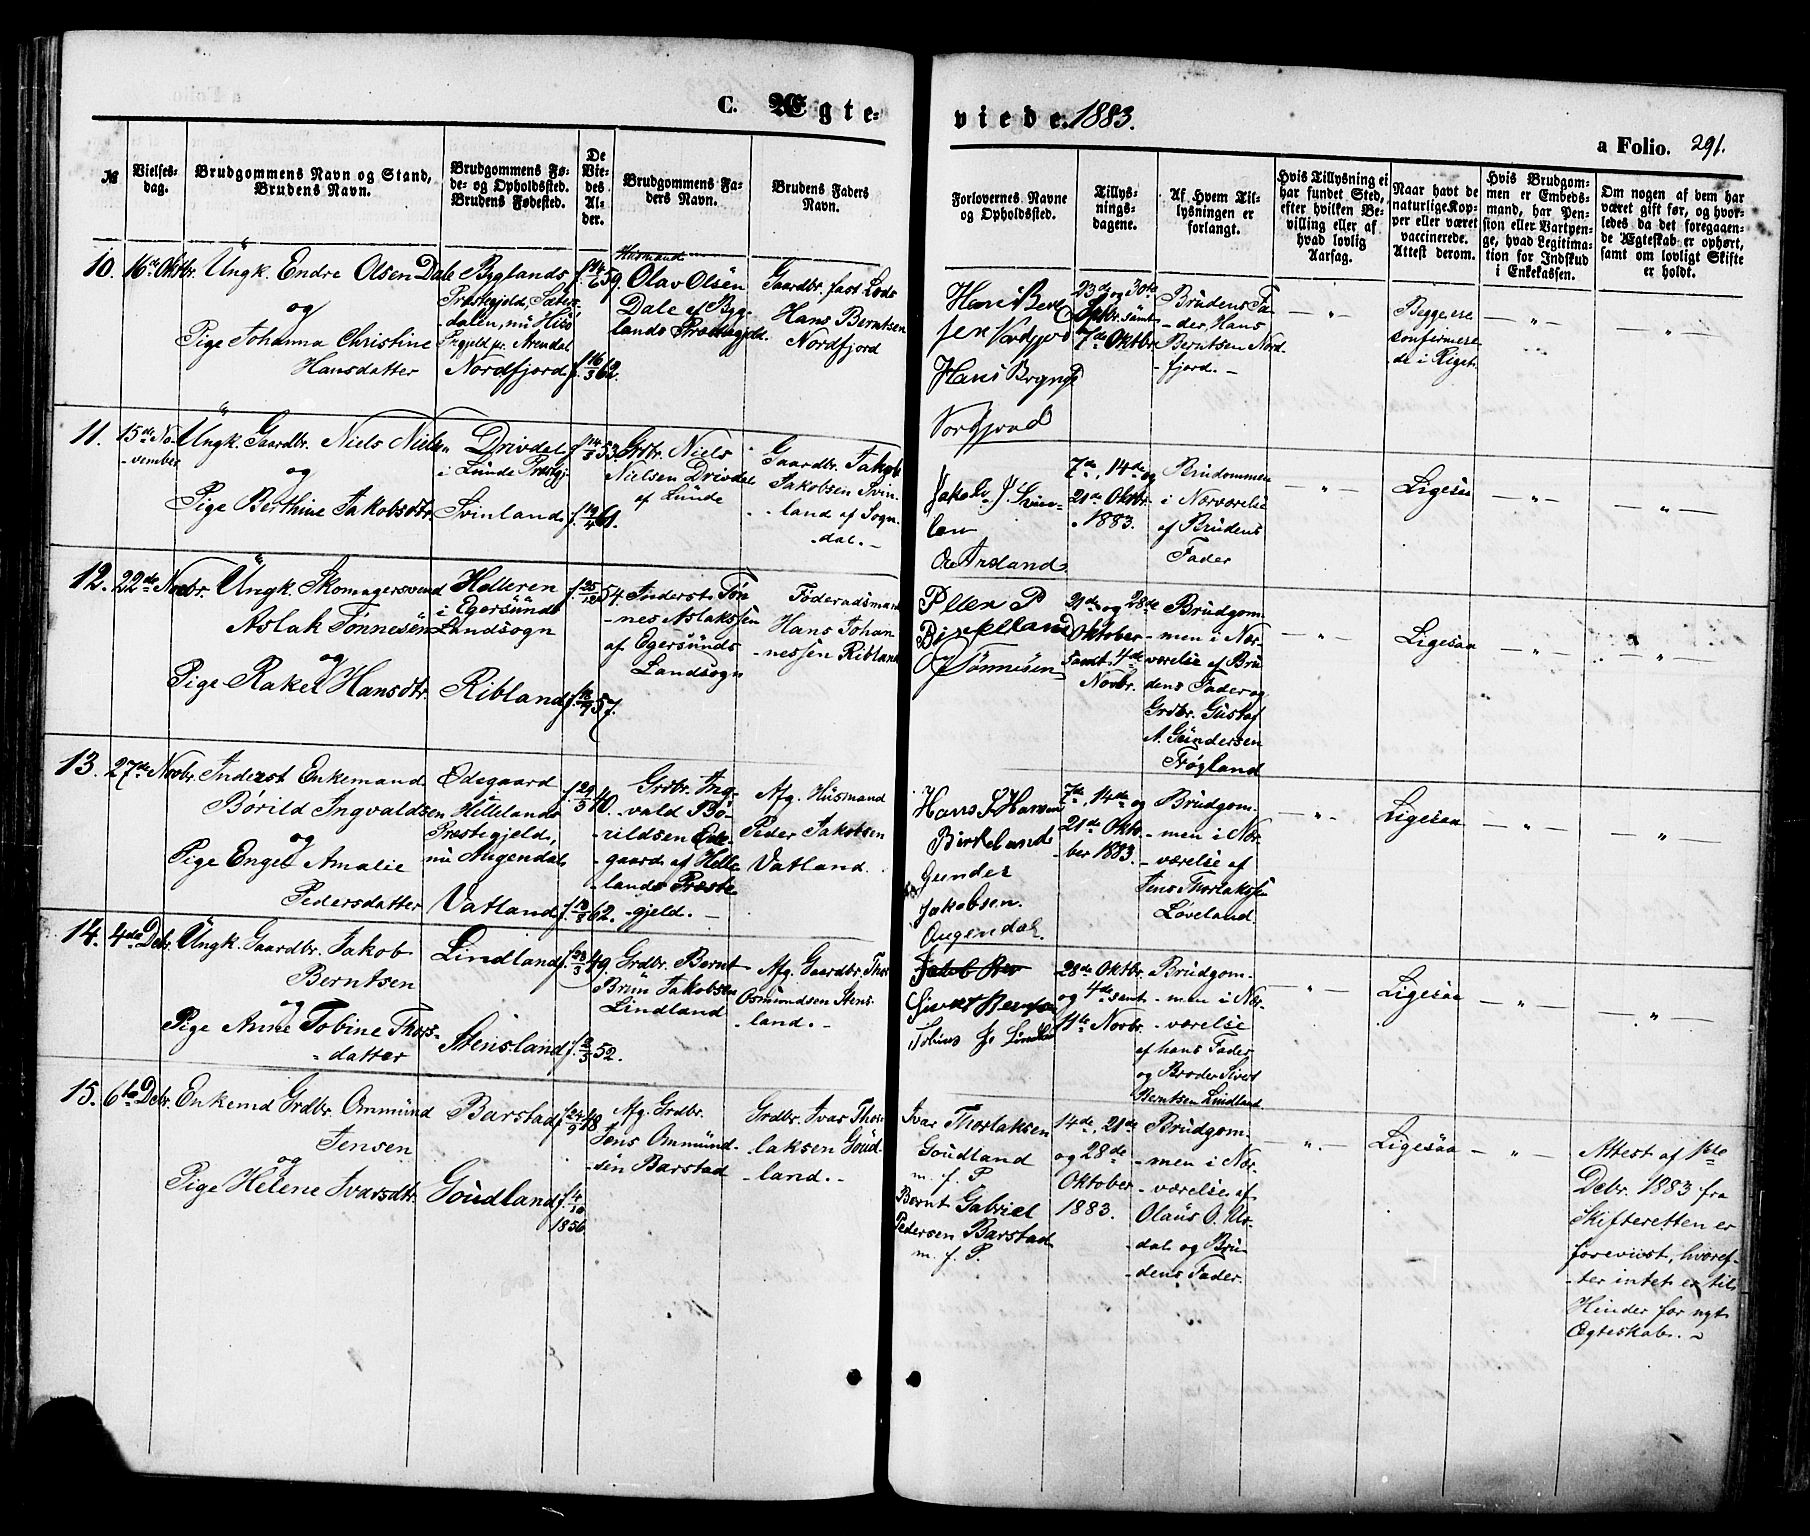 C. Ægte-
viede. 1883.
a Folio. 291.
№
Vielses-
dag.
Brudgommens Navn og Stand,
Brudens Navn.
Brudgommens Fø-
de- og Opholdssted.
Brudens Fødested.
De
Vie-
des
Al-
der.
Brudgommens Fa-
ders Navn.
Brudens Faders
Navn.
Forlovernes Navne
og Opholdssted.
Tillys-
nings-
dagene.
Af Hvem Til-
lysningen er
forlangt.
Hvis Tillysning ei
har fundet Sted,
efter hvilken Be-
villing eller af
hvad lovlig
Aarsag.
Naar havt de
naturlige Kop-
per eller været
vaccinerede.
Attest derom.
Hvis Brudgom-
men er Embeds-
mand, har Pen-
sion eller Vartpen-
ge, hvad Legitima-
tion for Indskud
i Enkekassen.
Om nogen af dem har
været gift før, og hvor-
ledes da det foregaaen-
de Ægteskab er ophørt,
samt om lovligt Skifte
er holdt.
10. 16de Oktbr. Ungk. Endre Olsen Dale
og
Pige Johanna Christine
Hansdatter
Byglands
Præstegjeld, Sæters-
dalen, nu Hisø
Prgjeld pr. Arendal
Nordfjord
f. 14/7 59.
f. 16/3 62.
Husmand
Olav Olsen
Dale af Byg-
lands Præstegjeld.
Gaardbr. fast Lods
Hans Berntsen
Nordfjord
23de og 30te
Septbr. samt
7de Oktbr.
Brudens Fa-
der, Hans
Berntsen Nord-
fjord. -
- " -
Begge ere
confirmere-
de i Riget.
- " -
- " -
11. 15de No-
vember
Ungk. Gaardbr. Niels Nielsen
og
Pige Berthine Jakobsdtr.
Drivdal
i Lunde Præstgj.
Svinland
f. 14/5 53.
f. 19/4 61.
Grdbr. Niels
Nielsen Drivdal
af Lunde
Gaardbr. Jakob
Jakobsen Svin-
land af Sogn-
dal. -
7de, 14de og
21de Oktbr.
1883.
Brudommen
i Nærværelse
af Brudens
Fader
- " -
Ligesaa
- " -
- " -
12. 22de Novbr. Ungk. Skomagersvend
Aslak Tønnesen
og
Pige Rakel Hansdtr.
Helleren
i Egersunds
Landsogn
Ribland
f. 25/12 54.
f. 18/9 57.
Inderst Tøn-
nes Aslaksen
af Egersunds
Landsogn
Føderaadsmand
Hans Johan-
nessen Ribland
O Tønnesen
21de og 28de
Oktober
samt 4de
Novbr.
Brudgom-
men i Nær-
værelse af Bru-
dens Fader og
Grdbr. Gustaf
A. Gundersen
Frøgland
- " -
Ligesaa
- " -
- " -
13. 27de Novbr. Inderst Enkemand
Børild Ingvaldsen
og
Pige Engel Amalie
Pedersdatter
Ødegaard
Hellelands
Præstegjeld,
nu Augendal
Vatland
f. 29/3 40.
f. 13/8 62.
Grdbr. Ing-
vald Bø-
rildsen Øde-
gaard af Helle-
lands Præste-
gjeld. -
Afg. Husmand
Peder Jakobsen
Vatland.
Birkeland
Gunder
Jakobsen
Augendal.
7de, 14de og
21de Okto-
ber 1883.
Brudgom-
men i Nær-
værelse af
Jens Thorlaksen
Løveland.
- " -
Ligesaa
- " -
- " -
14. 4de Debr. Ungk. Gaardbr. Jakob
Berntsen
og
Pige Anne Tobine Thors-
datter
Lindland
Stensland
f. 23/3 49.
f. 2/3 52.
Grdbr. Bernt
Brun Jakobsen
Lindland
Afg. Gaardbr. Thor
Osmundsen Stens-
land. -
28de Oktbr.
og 4de samt
11te Novbr.
Brudgom-
men i Nær-
værelse
af hans Fader
og Broder Sivert
Berntsen Lindland
- " -
Ligesaa
- " -
- " -
15. 6te Debr. Enkemd Grdbr. Ommund
Jensen
og
Pige Helene Ivarsdtr.
Barstad
Goudland
f. 24/9 48
f. 4/10
1856
Afg. Grdbr.
Jens Ommund-
sen Barstad
Grdbr. Ivar Thor-
laksen Goud-
land. -
Ivar Thorlaksen
Goudland
m. f. P.
Bernt Gabriel
Pedersen Barstad
m. f. P.
14de, 21de
og 28de
Oktober
1883.
Brudgom-
men i Nær-
værelse af
Olaus O. Ur-
dal og Bru-
dens Fader.
- " -
Ligesaa
- " -
Attest af 1ste
Debr. 1883 fra
Skifteretten er
forevist, hvoref-
ter intet er til
Hinder for nyt
Ægteskab. -